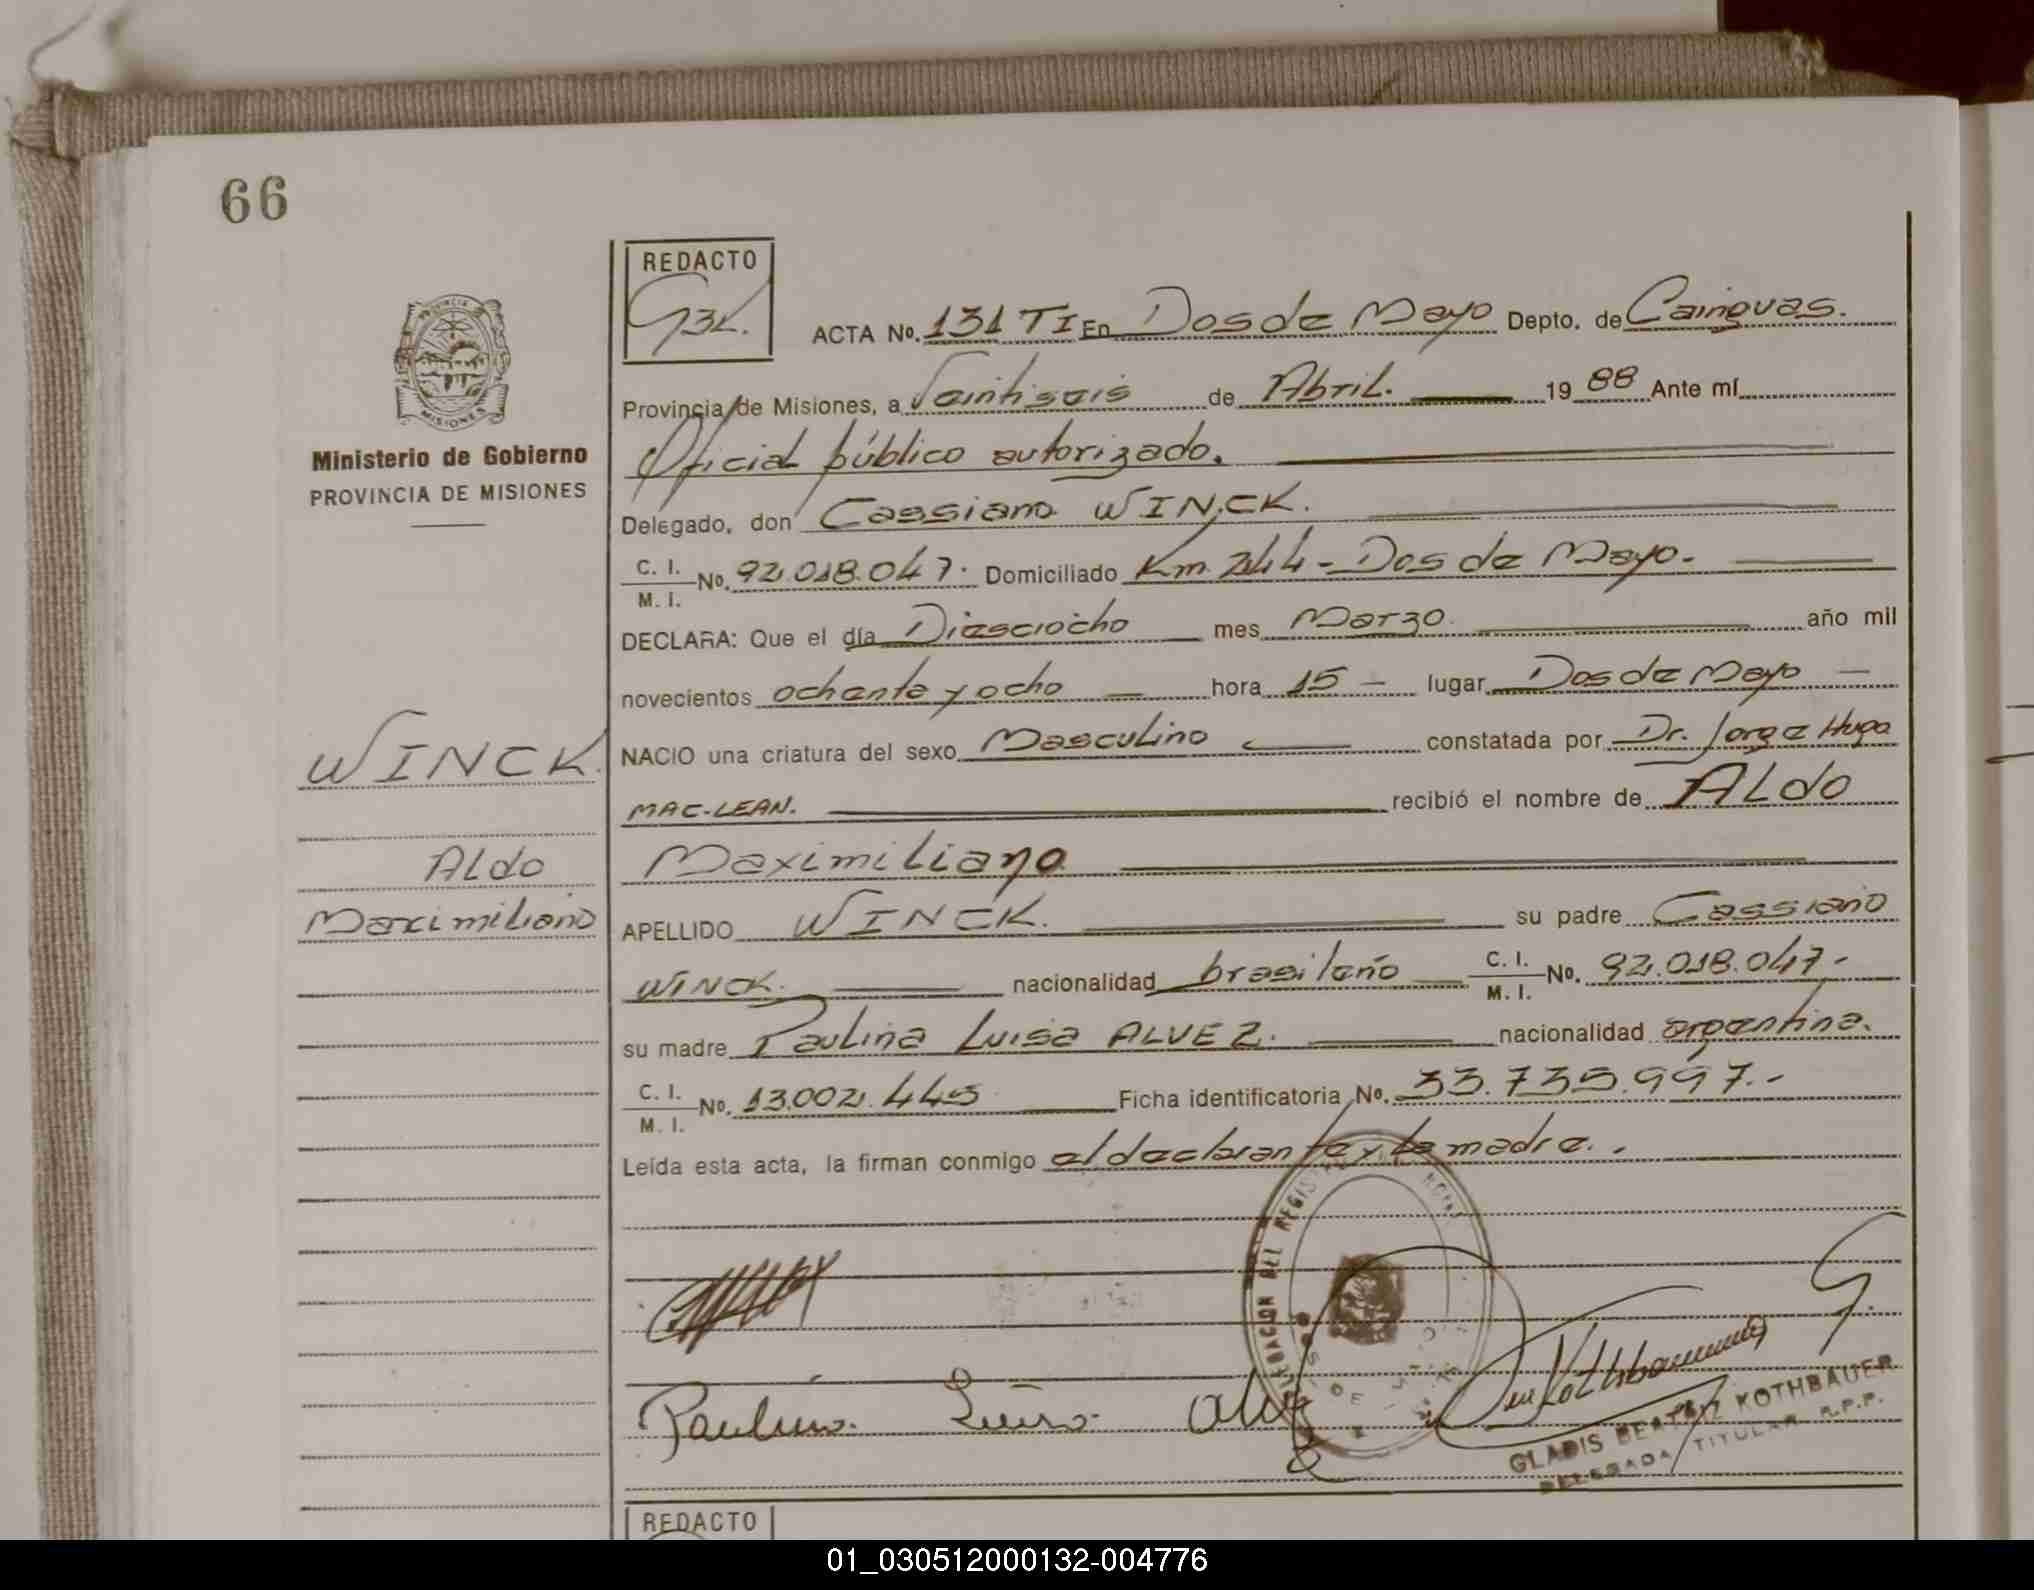 66
REDACTO
ACTA No. 131 TI En Dos de Mayo Depto. de Cainguas.
Provincia de Misiones, a Veintiseis de Abril. 19 88 Ante mí
Oficial público autorizado.
Delegado, don Cassiano WINCK.
C. I. M. I. No. 92.018.047. Domiciliado Km. 244 - Dos de Mayo.
DECLARA: Que el día Diesciocho mes Marzo. año mil
novecientos ochenta y ocho hora 15 - lugar Dos de Mayo -
NACIO una criatura del sexo Masculino constatada por Dr. Jorge Hugo
MAC-LEAN. recibió el nombre de ALdo
Maximiliano
APELLIDO WINCK. su padre Cassiano
WINCK. nacionalidad brasileño C. I. M. I. No. 92.018.047.-
su madre Paulina Luisa ALVEZ. nacionalidad argentina.
C. I. M. I. No. 13.002.445 Ficha identificatoria No. 33.735.997.-
Leída esta acta, la firman conmigo el declarante y la madre..
PROVINCIA
MISIONES
Ministerio de Gobierno
PROVINCIA DE MISIONES
WINCK.
ALdo
Maximiliano
Paulina Luisa
GLADIS BEATRIZ KOTHBAUER
DELEGADA TITULAR R.P.P.
REDACTO
01_030512000132-004776